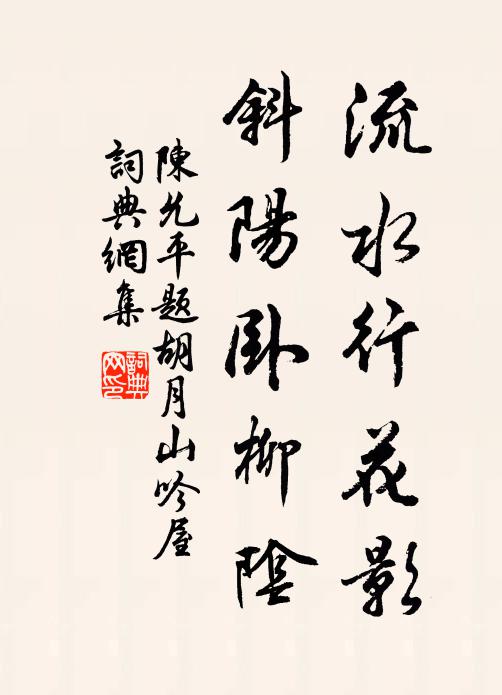 流水行花影
斜陽卧柳陰
陳允平題胡月山吟屋
詞典網集
詞典网印